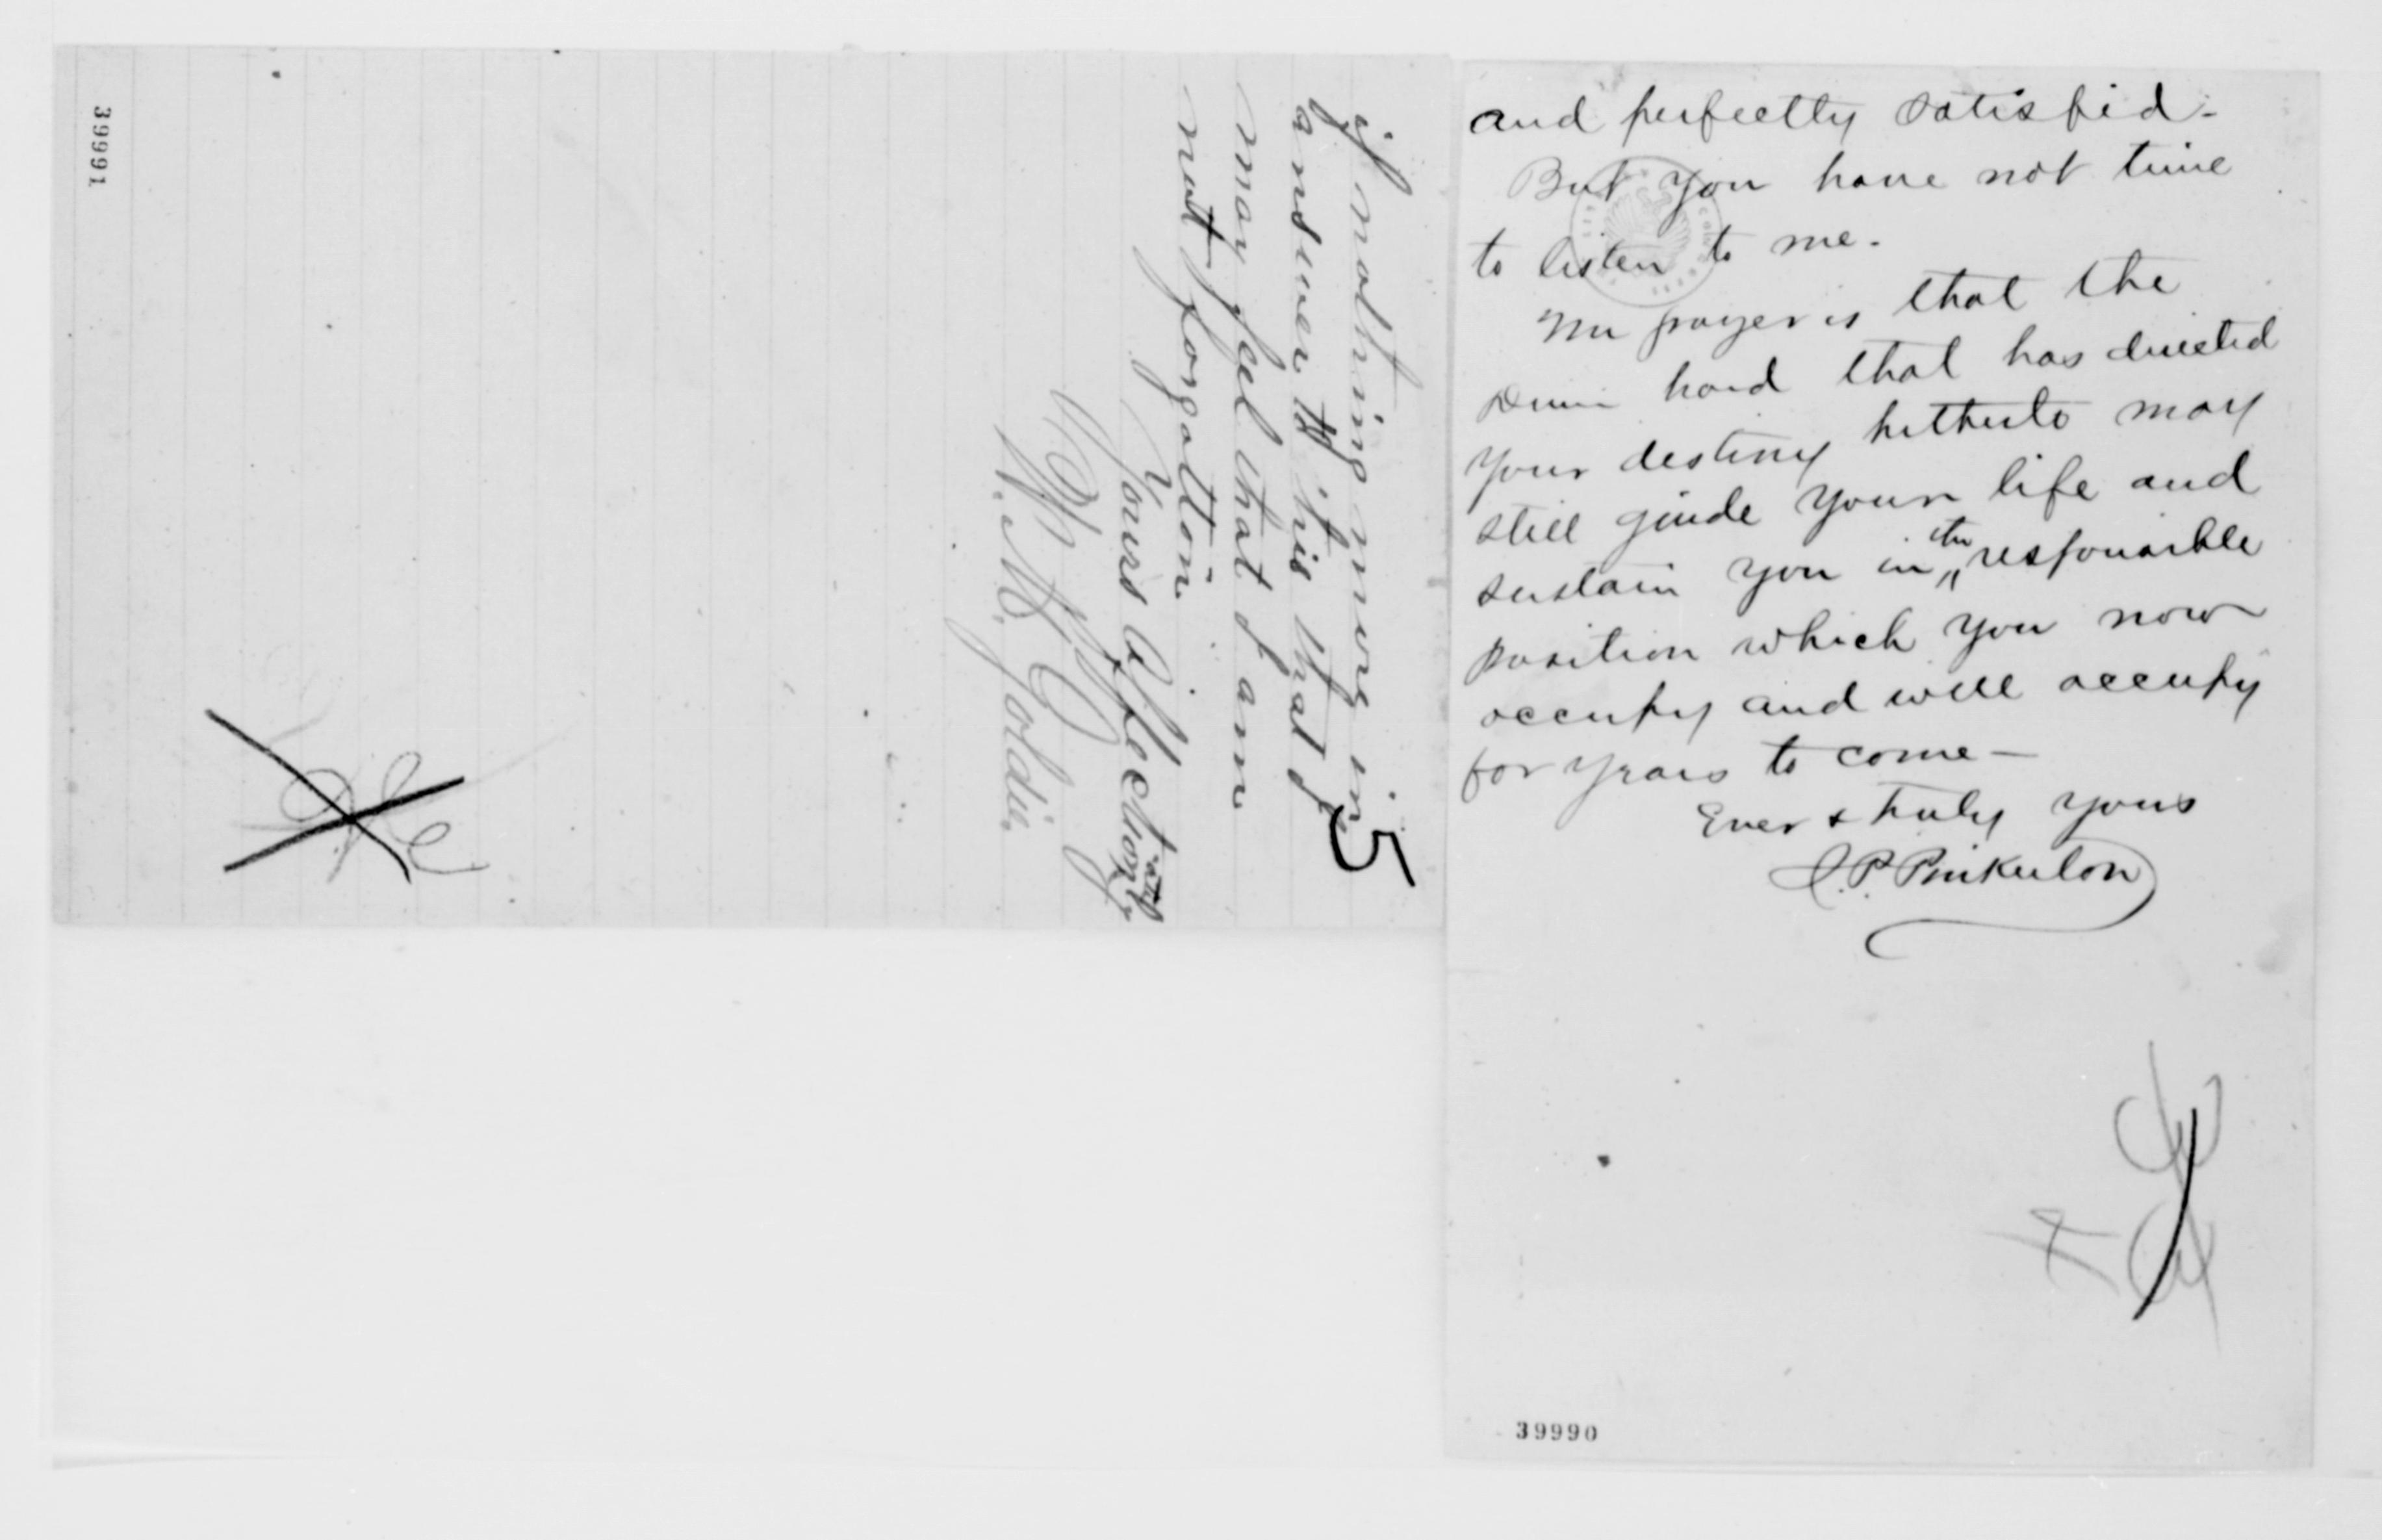 if nothing more in
answer to this that I
may feel that I am
not forgotton.
Yours Affectionately
W. M. Goldie.
5
39991
and perfectly satisfid -
But you have not time
to listen to me.
My prayer is that the
Divine hand that has directed
your destiny hitherto may
still guide your life and
sustain you in the responsible
position which you now
occupy and will occupy
for years to come —
Ever & truly yours
J. P. Pinkerton
39990